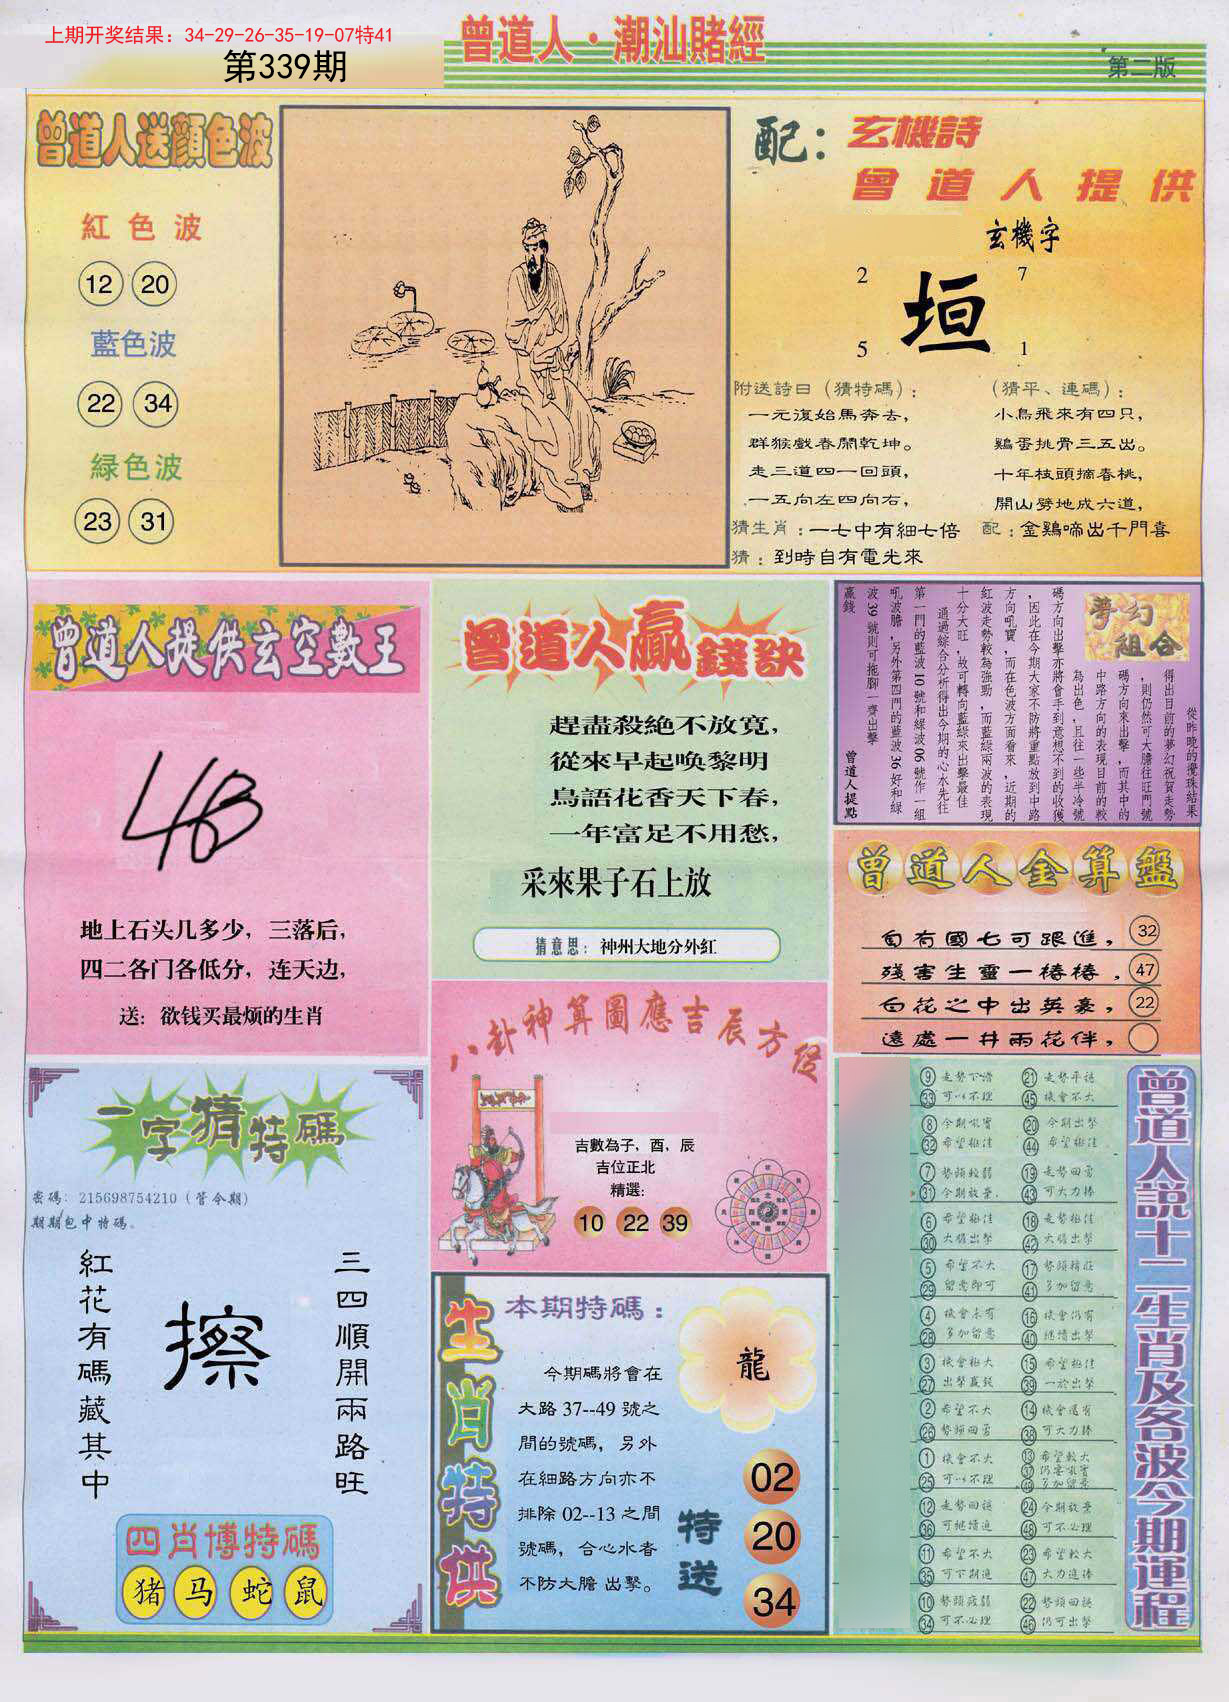 上期开奖结果：34-29-26-35-19-07特41
第339期
曾道人·潮汕賭經
第二版
曾道人送顔色波
紅色波
12 20
藍色波
22 34
緑色波
23 31
配：玄機詩
曾道人提供
玄機字
2 7
垣
5 1
附送詩曰（猜特碼）：
一元復始馬奔去，
群猴戲春鬧乾坤。
走三道四一回頭，
一五向左四向右，
（猜平、連碼）：
小鳥飛來有四只，
鷄蛋挑骨三五出。
十年枝頭摘春桃，
開山劈地成六道，
猜生肖：一七中有細七倍
配：金鷄啼出千門喜
猜：到時自有電光來
曾道人提供玄空數王
48
地上石头几多少，三落后，
四二各门各低分，连天边，
送：欲钱买最烦的生肖
曾道人贏錢訣
趕盡殺絶不放寬，
從來早起唤黎明
鳥語花香天下春，
一年富足不用愁，
采來果子石上放
猜意思：神州大地分外紅
夢幻組合
從昨晚的攪珠結果
得出目前的夢幻祝賀走勢
，則仍然可大膽往旺門號
碼方向來出擊，而其中的
中路方向的表現目前的較
為出色，且往一些半冷號
碼方向出擊亦將會手到意想不到的收獲
，因此在今期大家不防將重點放到中路
方向吼寶，而在色波方面看來，近期的
紅波走勢較為強勁，而藍綠兩波的表現
十分大旺，故可轉向藍綠來出擊最佳
通過綜合分析得出今期的心水先往
第一門的藍波10號和綠波06號作一組
吼波膽，另外第四門的藍波36好和綠
波39號則可拖腳一齊出擊
贏錢
曾道人提點
曾道人金算盤
自有國七可跟進，32
殘害生靈一樁樁，47
白花之中出英豪，22
遠處一井兩花伴，
八卦神算圖應吉辰方位
吉數為子，酉，辰
吉位正北
精選：
10 22 39
一字猜特碼
密碼：215698754210（管令期）
期期包中特碼。
三四順開兩路旺
擦
紅花有碼藏其中
四肖博特碼
猪 马 蛇 鼠
生肖特供
本期特碼：
今期碼將會在
大路37--49號之
間的號碼，另外
在細路方向亦不
排除02--13之間
號碼，合心水者
不防大膽出擊。
龍
特送
02
20
34
曾道人説十二生肖及各波今期運程
⑨ 走勢下滑 ㉑ 走勢平穩
㉝ 可以不理 ㊺ 機會不大
⑧ 今期吼寶 ⑳ 今期出擊
㉜ 希望極佳 ㊹ 希望極佳
⑦ 勢頭較弱 ⑲ 走勢回勇
㉛ 今期放棄 ㊸ 可大力捧
⑥ 希望極佳 ⑱ 走勢極佳
㉚ 大膽出擊 ㊷ 大膽出擊
⑤ 希望不大 ⑰ 勢頭精莊
㉙ 留意即可 ㊶ 多加留意
④ 機會未有 ⑯ 機會仍有
㉘ 多加留意 ㊵ 繼續出擊
③ 機會極大 ⑮ 希望極佳
㉗ 出擊贏錢 ㊴ 一於出擊
② 希望不大 ⑭ 機會還有
㉖ 勢頭回勇 ㊳ 可大力捧
① 機會不大 ⑬ 希望較大
㊲ 仍要吼實
㉕ 可以不理 ㊾ 多加留意
⑫ 走勢回穩 ㉔ 今期放棄
㊱ 可繼續追 ㊽ 可不必理
⑪ 希望不大 ㉓ 希望較大
㉟ 可下期追 ㊼ 大力追捧
⑩ 勢頭疲弱 ㉒ 勢頭回穩
㉞ 可不必理 ㊻ 仍可出擊